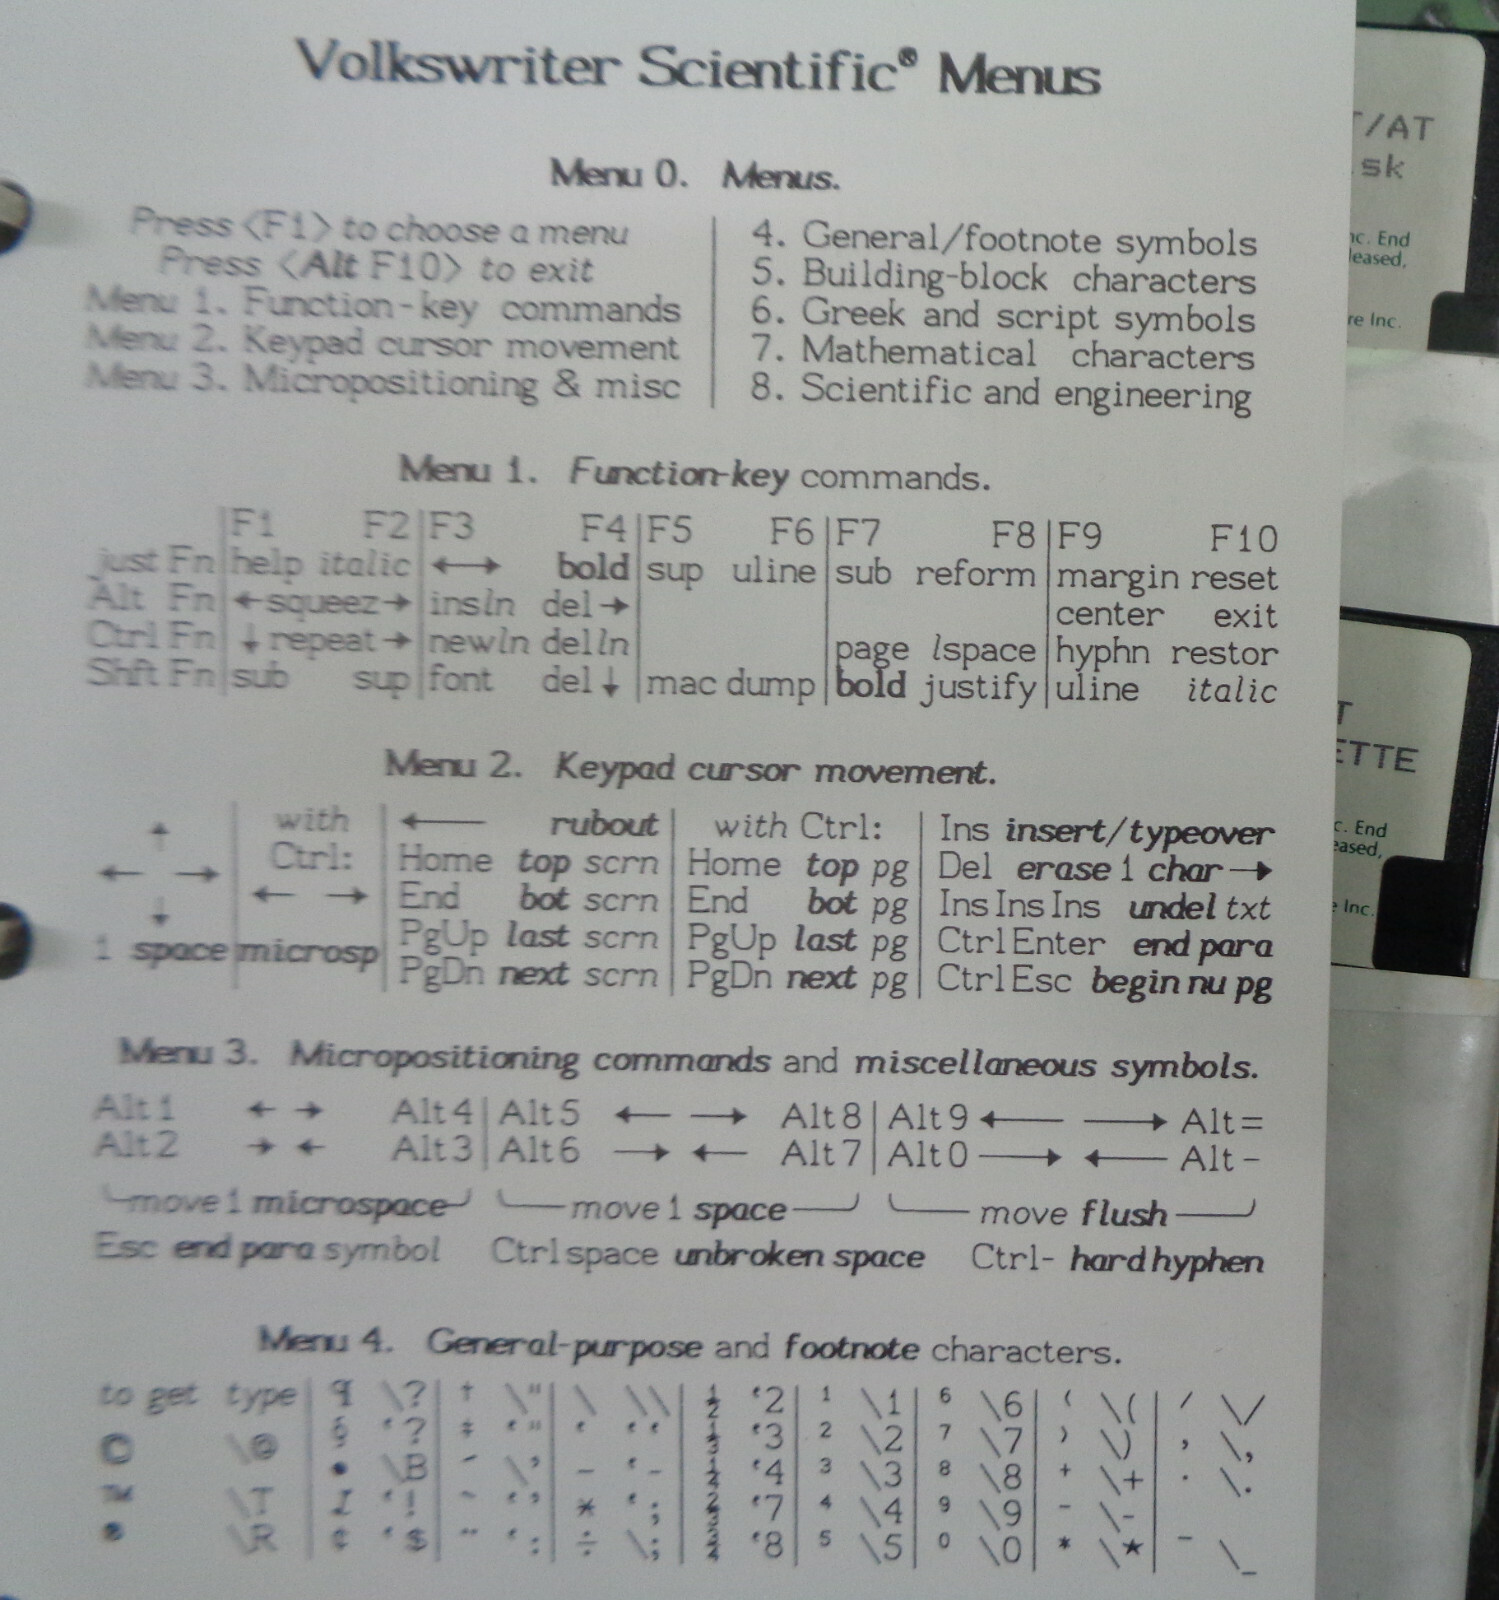 Volkswriter Scientific® Menus
Menu 0. Menus.
Press <F1> to choose a menu
Press <Alt F10> to exit
Menu 1. Function-key commands
Menu 2. Keypad cursor movement
Menu 3. Micropositioning & misc
4. General/footnote symbols
5. Building-block characters
6. Greek and script symbols
7. Mathematical characters
8. Scientific and engineering
Menu 1. Function-key commands.
F1 F2 F3 F4 F5 F6 F7 F8 F9 F10
just Fn help italic ←→ bold sup uline sub reform margin reset
Alt Fn ←squeez→ insln del→ center exit
Ctrl Fn ↓repeat→ newln delln page lspace hyphn restor
Shft Fn sub sup font del↓ mac dump bold justify uline italic
Menu 2. Keypad cursor movement.
↑
← →
↓
1 space
with
Ctrl:
← →
microsp
← rubout
Home top scrn
End bot scrn
PgUp last scrn
PgDn next scrn
with Ctrl:
Home top pg
End bot pg
PgUp last pg
PgDn next pg
Ins insert/typeover
Del erase 1 char→
Ins Ins Ins undel txt
Ctrl Enter end para
Ctrl Esc begin nu pg
Menu 3. Micropositioning commands and miscellaneous symbols.
Alt 1 ← → Alt 4 Alt 5 ← → Alt 8 Alt 9 ← → Alt =
Alt 2 → ← Alt 3 Alt 6 → ← Alt 7 Alt 0 → ← Alt -
move 1 microspace move 1 space move flush
Esc end para symbol Ctrl space unbroken space Ctrl- hard hyphen
Menu 4. General-purpose and footnote characters.
to get type ¶ \? † \" \ \\ ½ '2 1 \1 6 \6 ( \( / \/
© \@ § '? ‡ '" ' '' '3 2 \2 7 \7 ) \) , \,
\B \' – '- '4 3 \3 8 \8 + \+ . \.
™ \T '! '' * '; '7 4 \4 9 \9 - \-
® \R ¢ '$ ¨ ': ÷ \; '8 5 \5 0 \0 * \* - \_
T/AT
sk
nc. End
leased,
re Inc.
T
ETTE
c. End
eased,
e Inc.